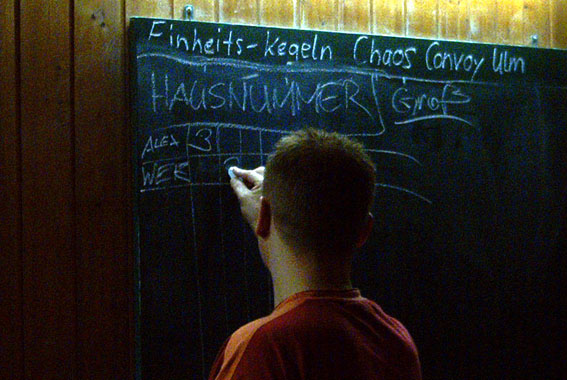 Einheits-Kegeln Chaos Convoy Ulm
HAUSNUMMER Groß
ALEX 3
WER